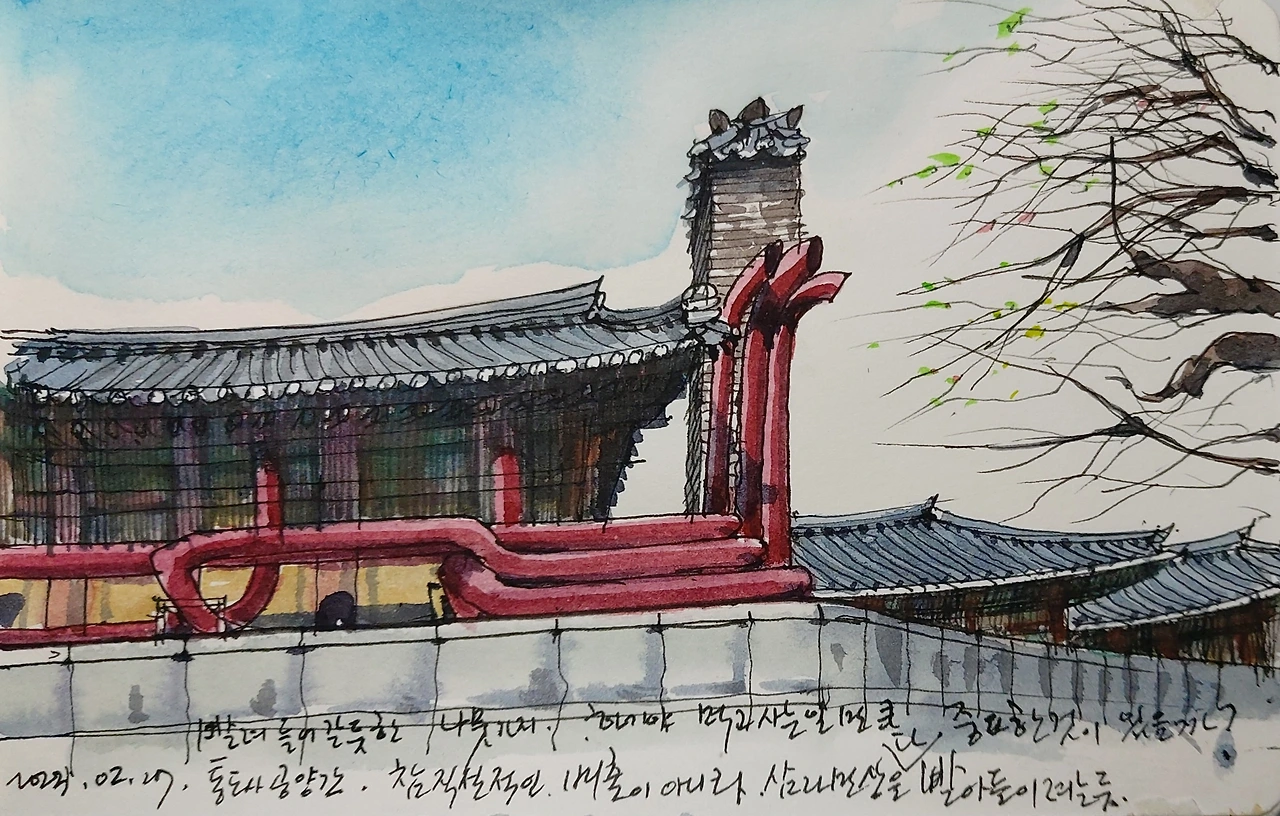 빨려 들어갈듯한 나뭇가지. 하기야 먹고 사는일 만큼 중요한것이 있을까?
02. 27. 통도사 공양간. 참 직설적인 배출이 아니라 삼라만상을 다 빨아들이려는듯.